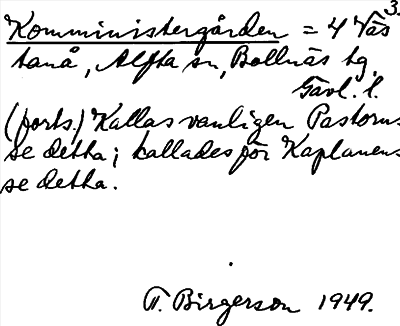 3.
Komministergården = 4 Väs
tanå, Alfta sn, Bollnäs tg.
Gävl. l.
(forts.) Kallas vanligen Pastorns
se detta; kallades för Kaplanens
se detta.
T. Birgerson 1949.